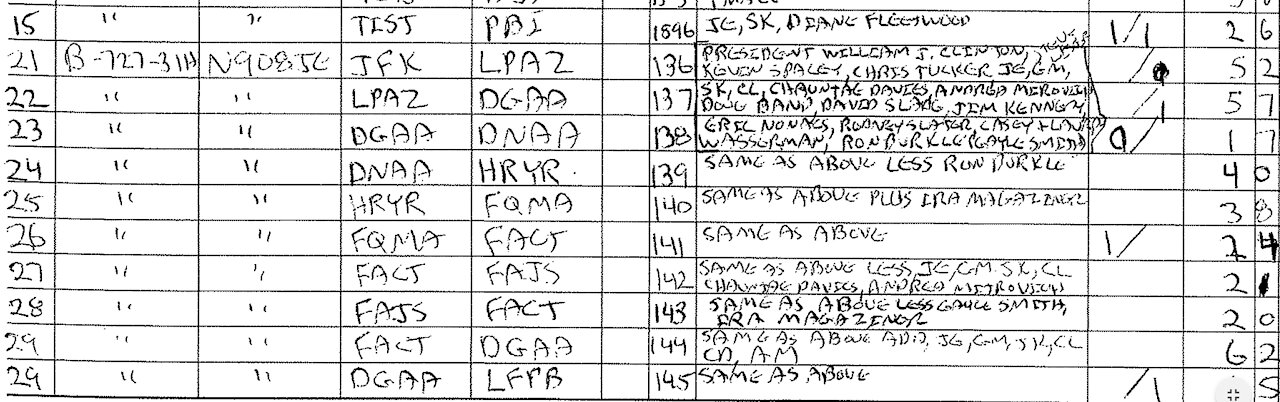 15 " " TIST PBI 1896 JE, SK, DIANE FLEETWOOD 1/1 2 6
21 B-727-31H N908JE JFK LPAZ 136 PRESIDENT WILLIAM J. CLINTON,
KEVIN SPACEY, CHRIS TUCKER JE, GM, / 5 2
22 " " LPAZ DGAA 137 SK, CL, CHAUNTAE DAVIES, ANDREA MITROVICH
DOUG BAND, DAVID SLANG, JIM KENNEZ, /1 5 7
23 " " DGAA DNAA 138 ERIC NONACS, RODNEY SLATER, CASEY +
WASSERMAN, RON BURKLE, GAYLE SMITH / 1 7
24 " " DNAA HRYR. 139 SAME AS ABOVE LESS RON BURKLE 4 0
25 " " HRYR FQMA 140 SAME AS ABOVE PLUS IRA MAGAZINER 3 8
26 " " FQMA FACT 141 SAME AS ABOVE 1/ 2 4
27 " " FACT FAJS 142 SAME AS ABOVE LESS, JE, GM SK, CL
CHAUNTAE DAVIES, ANDREA MITROVICH 2 1
28 " " FAJS FACT 143 SAME AS ABOVE LESS GAYLE SMITH,
IRA MAGAZINER 2 0
29 " " FACT DGAA 144 SAME AS ABOVE ADD, JE, GM, SK, CL
CD, AM 6 2
29 " " DGAA LFPB 145 SAME AS ABOVE /1 5